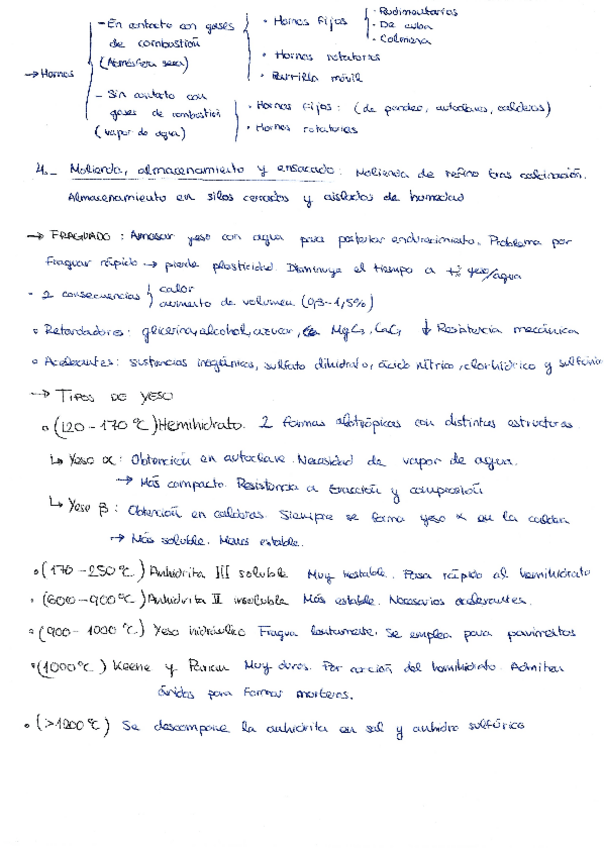 → Hornos
- En contacto con gases de combustión (Atmósfera seca)
· Hornos fijos
· Rudimentarios
· De cuba
· Colmena
· Hornos rotatorios
· Parrilla móvil
- Sin contacto con gases de combustión (vapor de agua)
· Hornos fijos: (de pander, autoclaves, calderas)
· Hornos rotatorios
4.- Molienda, almacenamiento y ensacado: Molienda de refino tras calcinación.
Almacenamiento en silos cerrados y aislados de humedad
→ FRAGUADO: Amasar yeso con agua para posterior endurecimiento. Problema por
fraguar rápido → pierde plasticidad. Disminuye el tiempo a yeso/agua
- 2 consecuencias calor
aumento de volumen (0,3-1,5%)
· Retardadores: glicerina, alcohol, azucar, ↓ Resistencia mecánica
· Acelerantes: sustancias inorgánicas, sulfato dihidrato, ácido nítrico, clorhídrico y sulfúrico
→ TIPOS DE YESO
· (120-170 ºC) Hemihidrato. 2 formas alotrópicas con distintas estructuras
↳ Yeso α: Obtención en autoclave. Necesidad de vapor de agua.
→ Más compacto. Resistencia a tracción y compresión
↳ Yeso β: Obtención en calderas. Siempre se forma yeso α en la caldera
→ Más soluble. Menos estable.
· (170-250 ºC) Anhidrita III soluble. Muy inestable. Pasa rápido al hemihidrato
· (600-900 ºC) Anhidrita II insoluble Más estable. Necesarios acelerantes.
· (900-1000 ºC) Yeso hidráulico Fragua lentamente. Se emplea para pavimentos
· (1000 ºC) Keene y Parian Muy duros. Por acción del hemihidrato. Admiten
áridos para formar morteros.
· (>1200 ºC) Se descompone la anhidrita en sal y anhidro sulfúrico